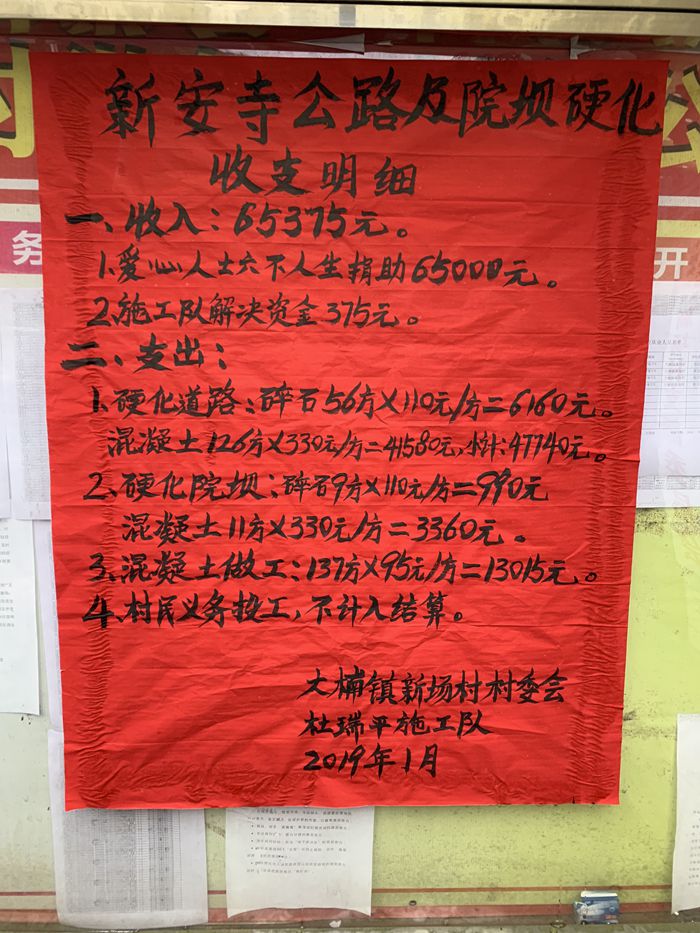 新安寺公路及院坝硬化
收支明细
一、收入：65375元。
1.爱心人士六下人生捐助65000元。
2.施工队解决资金375元。
二、支出：
1.硬化道路：碎石56方×110元/方=6160元。
混凝土126方×330元/方=41580元，小计：47740元。
2.硬化院坝：碎石9方×110元/方=990元
混凝土11方×330元/方=3360元。
3.混凝土做工：137方×95元/方=13015元。
4.村民义务投工，不计入结算。
大楠镇新场村村委会
杜瑞平施工队
2019年1月
务
开